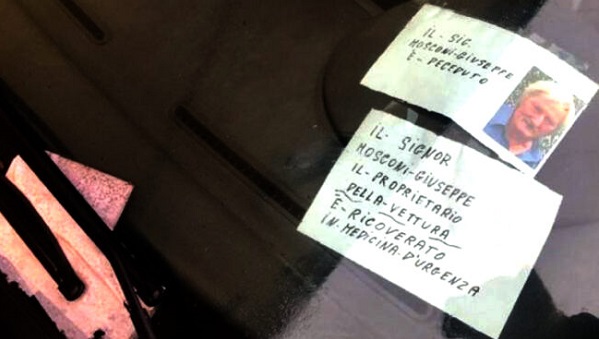 IL - SIG.
MOSCONI-GIUSEPPE
È - DECEDUTO
IL - SIGNOR
MOSCONI-GIUSEPPE
IL - PROPRIETARIO
DELLA - VETTURA
È - RICOVERATO
IN - MEDICINA - D'URGENZA